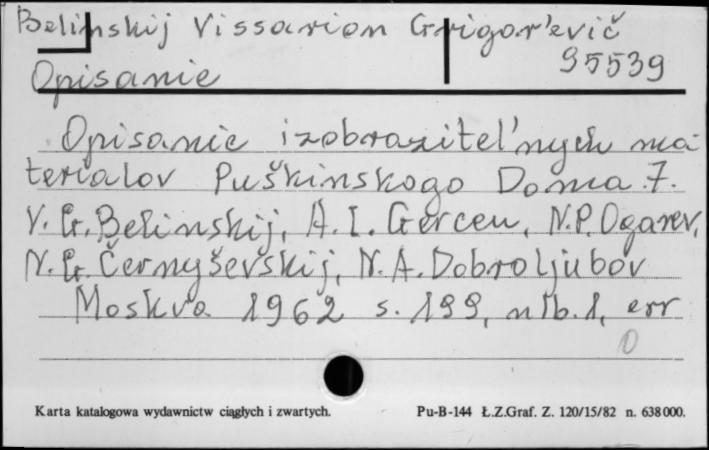 Belinskij Vissarion Grigor'evič
95539
Opisanie
Opisanie izobrazitel'nych ma
terialov Puškinskogo Doma. 7.
V. G. Belinskij, A. I. Gercen, N. P. Ogarev,
N. G. Černyševskij, N. A. Dobroljubov
Moskva 1962 s. 199, nlb. 1, err
0
Karta katalogowa wydawnictw ciągłych i zwartych.
Pu-B-144 Ł.Z.Graf. Z. 120/15/82 n. 638000.